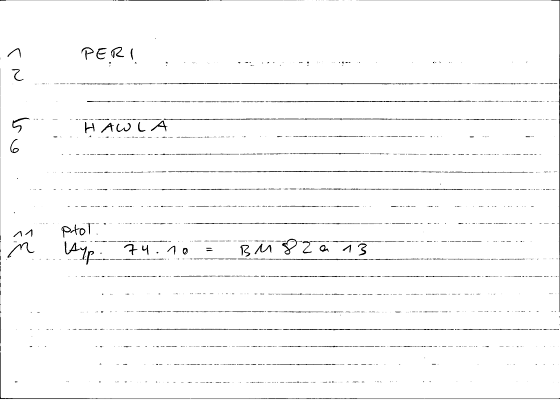 1 PERI
2
5 HAWLA
6
11 Ptol.
12 Hyp. 74.10 = BM 82a 13